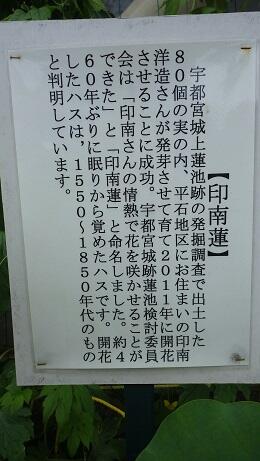 【印南蓮】
宇都宮城上蓮池跡の発掘調査で出土した
80個の実の内、平石地区にお住まいの印南
洋造さんが発芽させて育て2011年に開花
させることに成功。宇都宮城跡蓮池検討委員
会は「印南さんの情熱で花を咲かせることが
できた」と「印南蓮」と命名しました。約4
60年ぶりに眠りから覚めたハスです。開花
したハスは，1550～1850年代のもの
と判明しています。